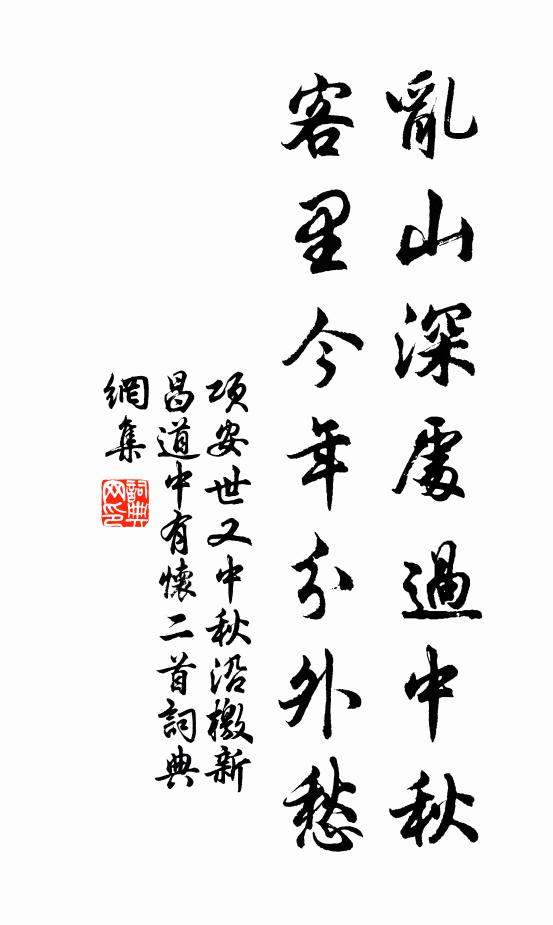 亂山深處過中秋
客里今年分外愁
項安世又中秋沿檄新
昌道中有懷二首詞典
網集
詞典網印